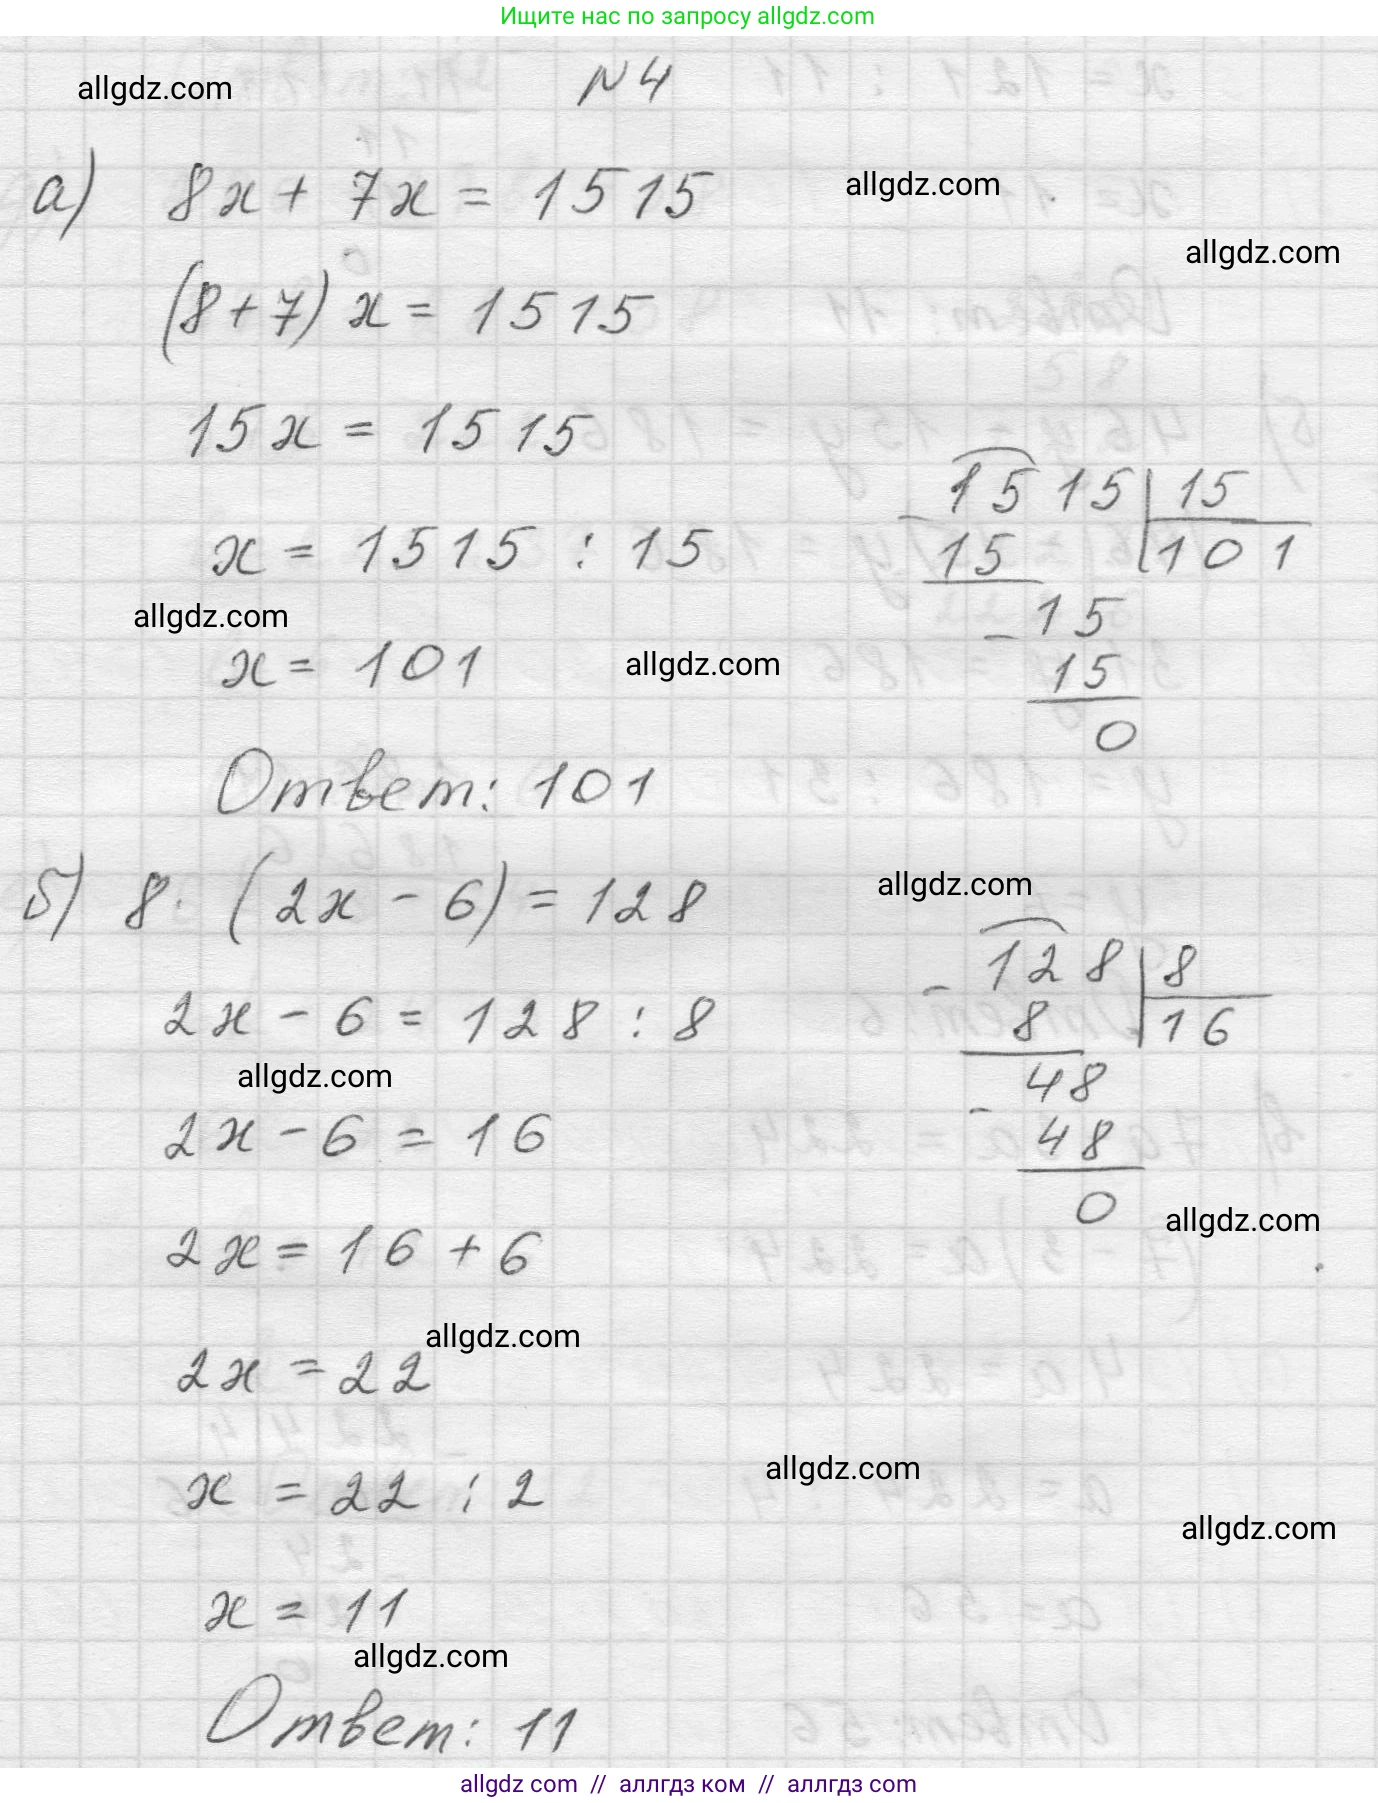 Ищите нас по запросу allgdz.com
allgdz.com
№4
а) 8x + 7x = 1515
allgdz.com
allgdz.com
(8+7) x = 1515
15x = 1515
x = 1515 : 15
allgdz.com
x = 101
allgdz.com
Ответ: 101
1515 | 15
- 15 | 101
- 15
15
0
б) 8 · (2x - 6) = 128
allgdz.com
2x - 6 = 128 : 8
allgdz.com
2x - 6 = 16
2x = 16 + 6
allgdz.com
2x = 22
x = 22 : 2
allgdz.com
allgdz.com
x = 11
allgdz.com
Ответ: 11
- 128 | 8
8 | 16
- 48
48
0
allgdz.com
allgdz com // аллгдз ком // аллгдз com